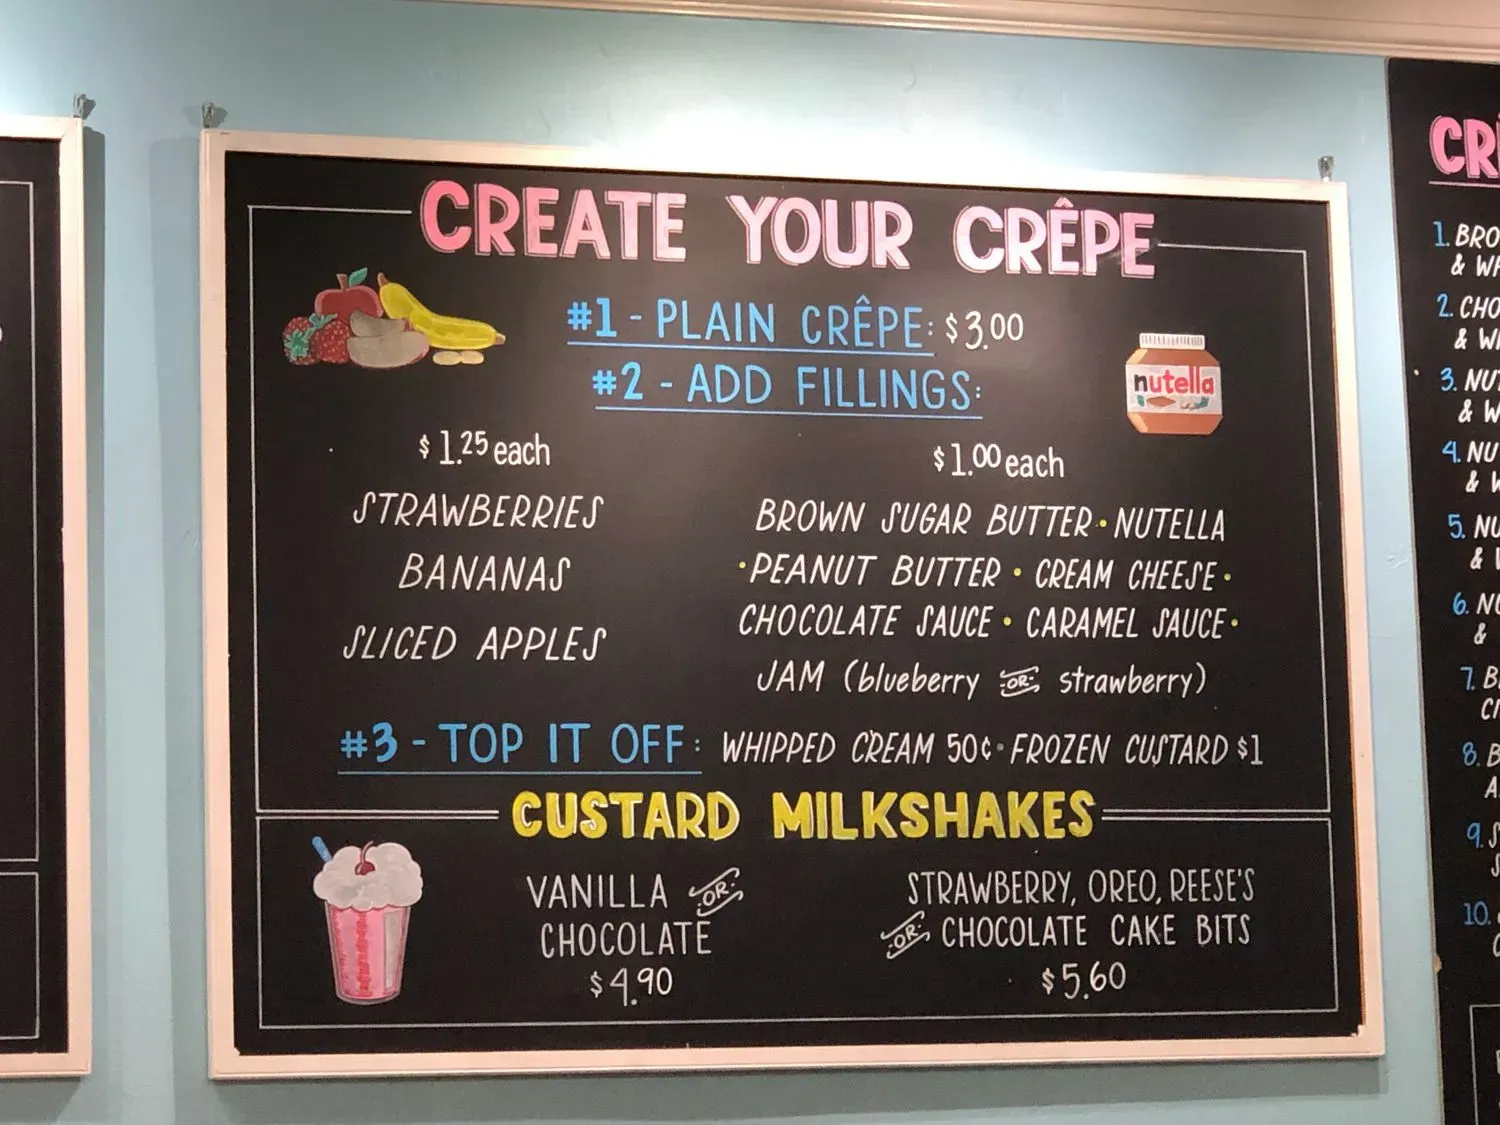 CREATE YOUR CRÊPE
#1 - PLAIN CRÊPE: $3.00
#2 - ADD FILLINGS:
nutella
$1.25 each
STRAWBERRIES
BANANAS
SLICED APPLES
$1.00 each
BROWN SUGAR BUTTER • NUTELLA
• PEANUT BUTTER • CREAM CHEESE •
CHOCOLATE SAUCE • CARAMEL SAUCE •
JAM (blueberry OR strawberry)
#3 - TOP IT OFF: WHIPPED CREAM 50¢ • FROZEN CUSTARD $1
CUSTARD MILKSHAKES
VANILLA OR
CHOCOLATE
$4.90
STRAWBERRY, OREO, REESE'S
OR CHOCOLATE CAKE BITS
$5.60
1.
& 
2.
& 
3.
& 
4.
& 
5.
& 
6.
& 
7.
8.
9.
10.